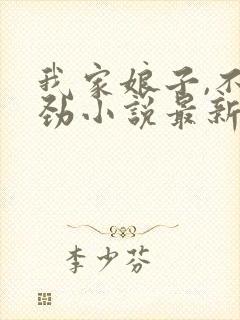 我家娘子,不
劲小说最新
李少芬